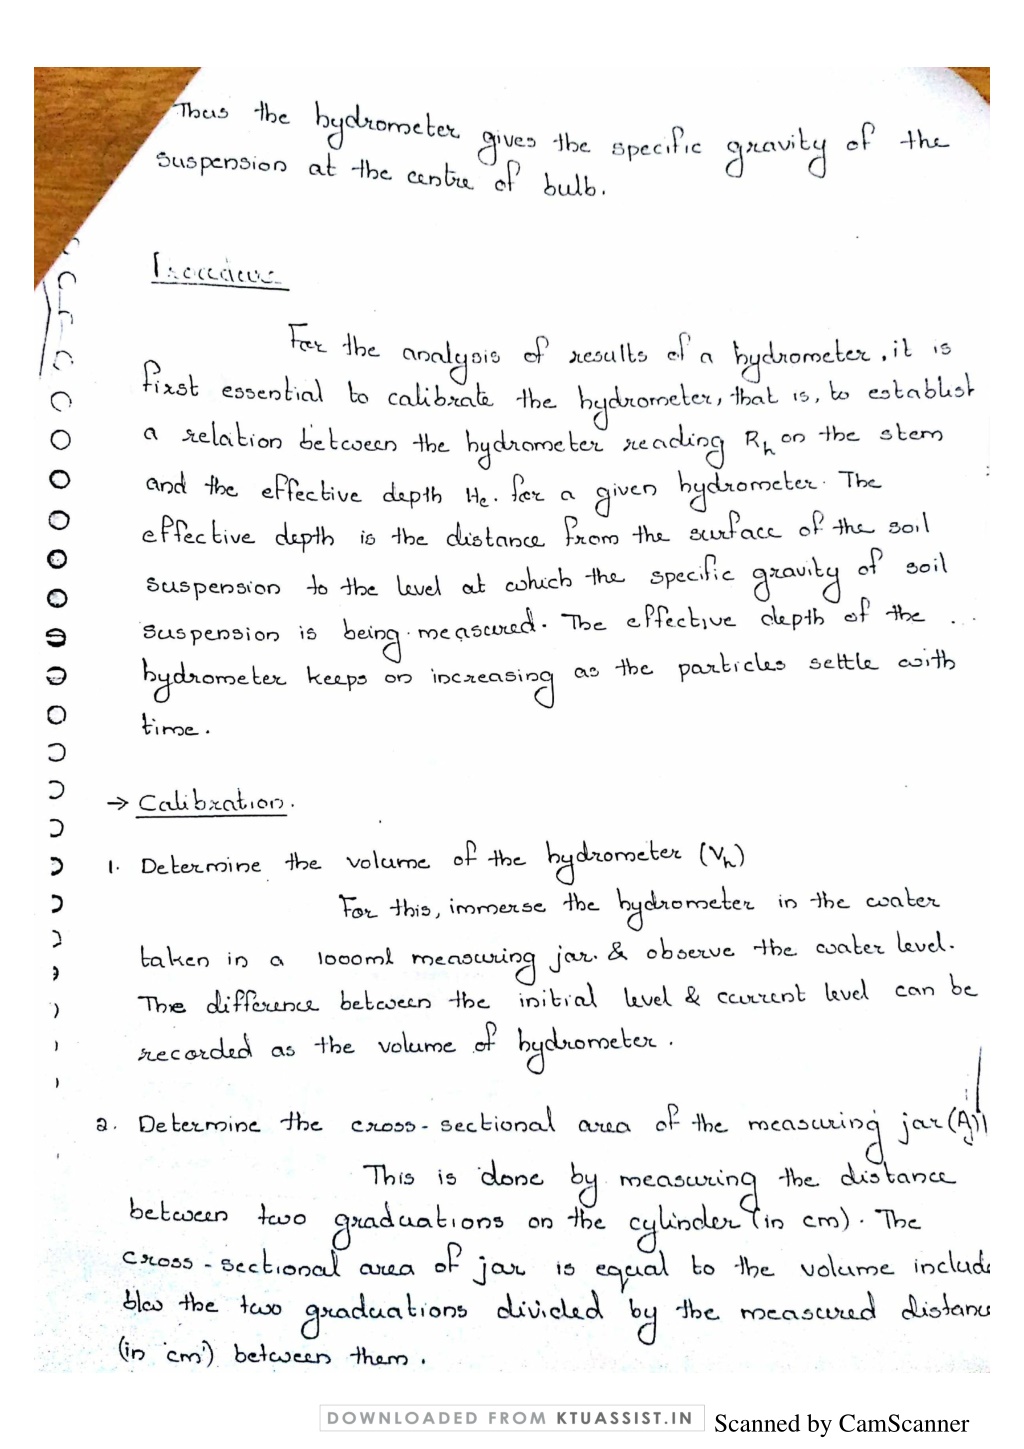 Thus the hydrometer gives the specific gravity of the
suspension at the centre of bulb.
For the analysis of results of a hydrometer, it is
first essential to calibrate the hydrometer, that is, to establish
a relation between the hydrometer reading Rh on the stem
and the effective depth He. for a given hydrometer. The
effective depth is the distance from the surface of the soil
suspension to the level at which the specific gravity of soil
suspension is being measured. The effective depth of the ...
hydrometer keeps on increasing as the particles settle with
time.
→ Calibration.
1. Determine the volume of the hydrometer (Vh)
For this, immerse the hydrometer in the water
taken in a 1000ml measuring jar. & observe the water level.
The difference between the initial level & current level can be
recorded as the volume of hydrometer.
2. Determine the cross-sectional area of the measuring jar (Aj)
This is done by measuring the distance
between two graduations on the cylinder (in cm). The
cross-sectional area of jar is equal to the volume include
b/w the two graduations divided by the measured distanc
(in cm) between them.
DOWNLOADED FROM KTUASSIST.IN
Scanned by CamScanner